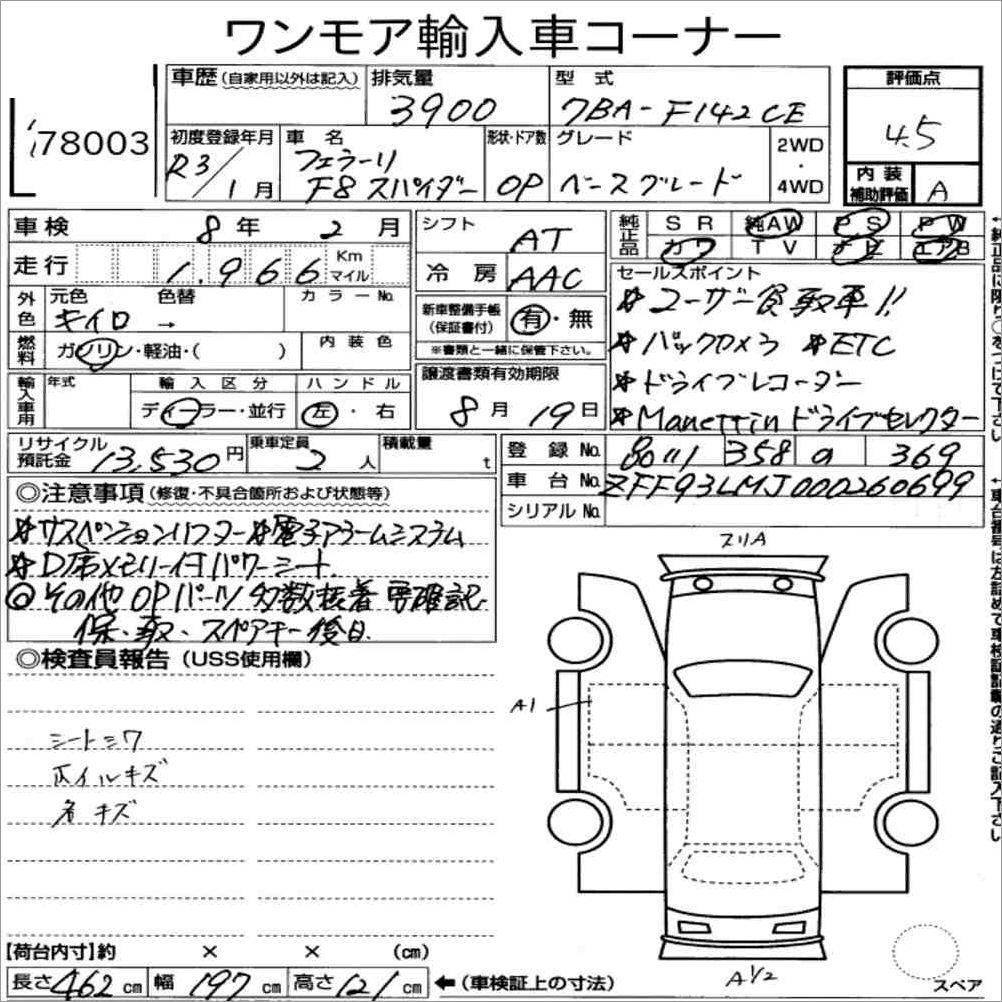 ワンモア輸入車コーナー
78003
車歴 (自家用以外は記入)
排気量
3900
型式
7BA-F142CE
評価点
4.5
初度登録年月
R3/1月
車名
フェラーリ
F8 スパイダー
形状・ドア数
OP
グレード
ベースグレード
2WD
・
4WD
内装
補助評価
A
車検 8年 2月
走行 1,966 Km マイル
シフト AT
冷房 AAC
純正品
SR 純AW PS PW
カワ TV ナビ エアB
外色
元色 色替 カラーNo.
キイロ →
燃料
ガソリン・軽油・( )
内装色
新車整備手帳
(保証書付)
有・無
※書類と一緒に保管下さい。
セールスポイント
*ユーザー買取車!!
*バックカメラ *ETC
*ドライブレコーダー
*Manettinドライブセレクター
輸入車用
年式
輸入区分
ディーラー・並行
ハンドル
左・右
譲渡書類有効期限
8月 19日
リサイクル
預託金 13,530円
乗車定員
2人
積載量
t
登録No. 358 369
車台No. ZFF93LMJ000260699
シリアルNo.
◎注意事項 (修復・不具合箇所および状態等)
*サスペンションリフター *電子アラームシステム
*D席メモリー付パワーシート
◎その他OPパーツ多数装着 要確認
保・取・スペアキー後日
◎検査員報告 (USS使用欄)
シートシワ
ホイルキズ
キズ
スリA
A1
A1/2
スペア
【荷台内寸】約 × × (cm)
長さ 462 cm 幅 197 cm 高さ 121 cm ←(車検証上の寸法)